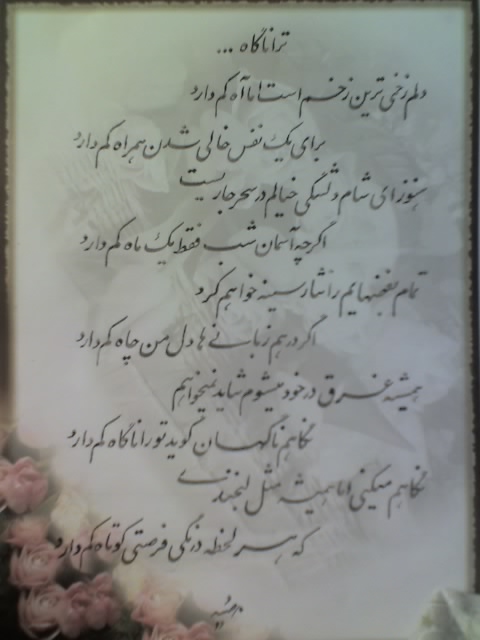 ترا ناگاه ...
دلم زخمی ترین زخم است اما آه کم دارد
برای یک نفس خالی شدن همراه کم دارد
هنوز ای شام دلتنگی خیالم در سحر جاریست
اگرچه آسمان شب فقط یک ماه کم دارد
تمام بغضهایم را نثار سینه خواهم کرد
اگر در همزبانی ها دل من چاه کم دارد
همیشه غرق در خود میشوم شاید نمیخواهم
نگاهم ناگهان گوید تو را ناگاه کم دارد
نگاهم میکنی اما همیشه مثل لبخندی
که هر لحظه درنگی فرصتی کوتاه کم دارد